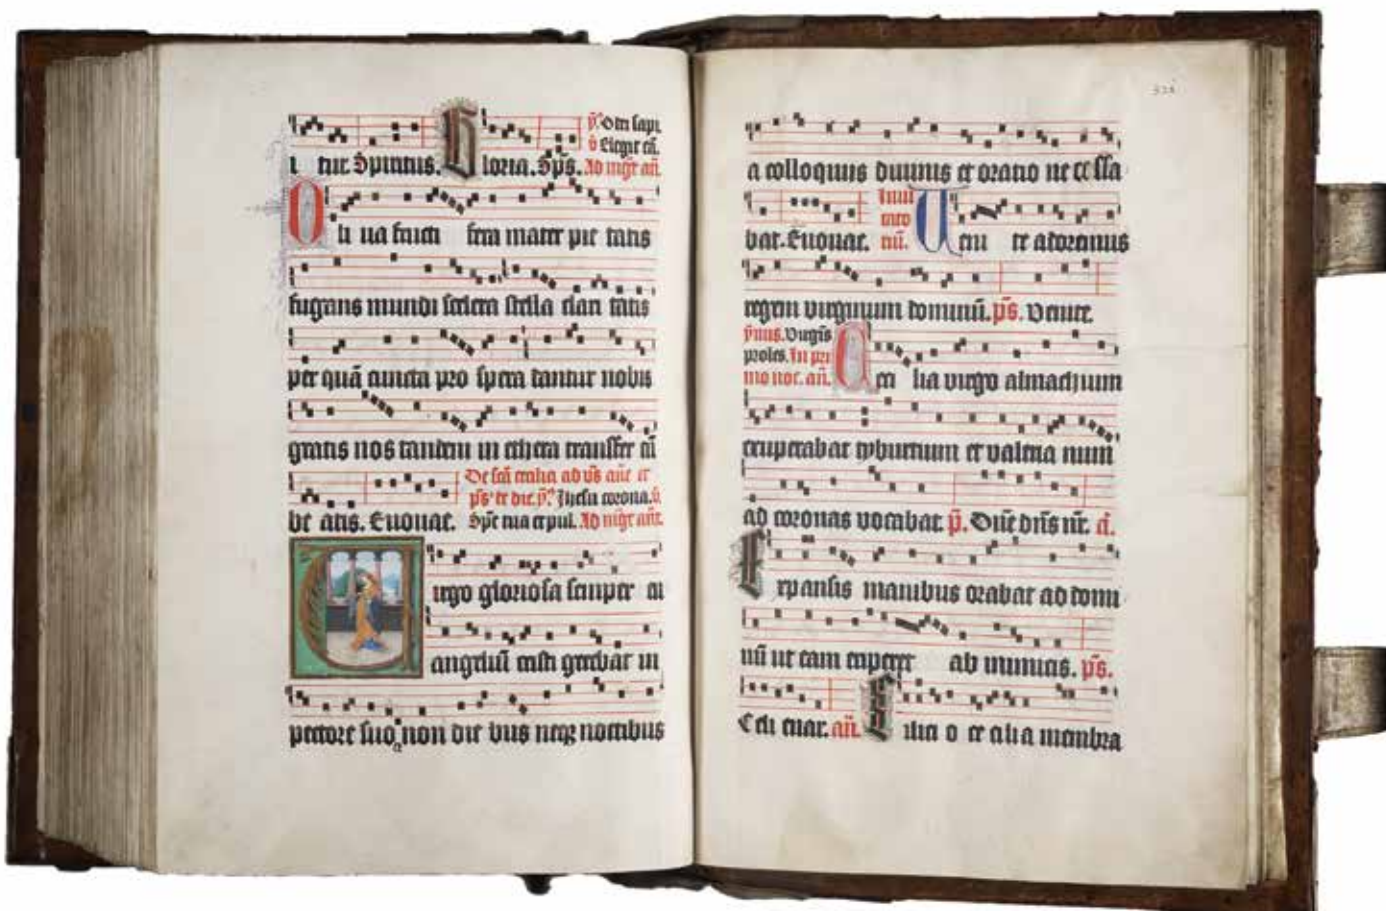 i tur Spiritus. Gloria. Sps.
O li ua fructi fera mater pie tatis
fugans mundi scelera stella clari tatis
per quā cuncta pro spera dantur nobis
gratis nos tandem in ethera transfer cū
be atis. Euouae.
De scā cecilia ad vs añe et
ps de die. Jhesu corona.
Ad mgr añe.
Uirgo gloriosa semper eu
angeliū cristi gerebat in
pectore suo non die bus neqz noctibus
321
a colloquiis diuinis et oratio ne ce ssa
bat. Euouae.
Inui
tato
riū.
Ueni te adoremus
regem virginum dominū. ps. Venite.
ymnus. Virgīs
proles. In pri
mo noc. añ.
Ceci lia virgo almachium
exuperabat tyburtium et valeria num
ad coronas vocabat. p. Dñe dñs nr. a.
Expansis manibus orabat ad domi
nū ut eam eriperet ab inimicis. ps.
Celi enar. añ. Cilici o ce alia membra